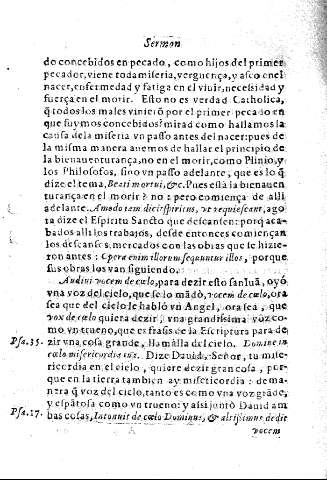 Sermon
do concebidos en pecado, como hijos del primer
pecador, viene toda miseria, verguença, y asco en el
nacer, enfermedad y fatiga en el viuir, necessidad y
fuerça en el morir. Esto no es verdad Catholica,
q̃ todos los males viniero͂ por el primer pecado en
que fuymos concebidos? mirad como hallamos la
causa de la miseria vn passo antes del nacer: pues de
la misma manera auemos de hallar el principio de
la bienauenturança, no en el morir, como Plinio, y
los Philosofos, sino vn passo adelante, que es lo q̃
dize el tema, Beati mortui, &c. Pues està la bienauen
turança en el morir? no: pero comiença de alli
adelante. Amodo iam dicit spiritus, vt requiescant, ago
ra dize el Espiritu Sancto que descansen: porq̃ aca-
bados alli los trabajos, desde entonces comiençan
los descansos, mercados con las obras que se hizie-
ron antes: Opera enim illorum sequuntur illos, porque
sus obras los van siguiendo.
Audiui vocem de cœlo, para dezir esto san Iuã, oyó
vna voz del cielo, que se lo mãdò, vocem de cœlo, ora
sea que del cielo le hablò vn Angel, ora sea, que
vox de cœlo quiera dezir, vna grandissima voz co-
mo vn trueno, que es frasis de la Escriptura para de-
Psa. 35. zir vna cosa grande, llamalla del cielo. Domine in
cœlo misericordia tua. Dize Dauid, Señor, tu mise-
ricordia en el cielo, quiere dezir gran cosa, por-
que en la tierra tambien ay misericordia: de ma-
nera q̃ voz del cielo, tanto es como vna voz grãde,
y espãtosa como vn trueno: y assi juntò Dauid am
Psa. 17. bas cosas, Intonuit de cœlo Dominus, & altissimus dedit
vocem